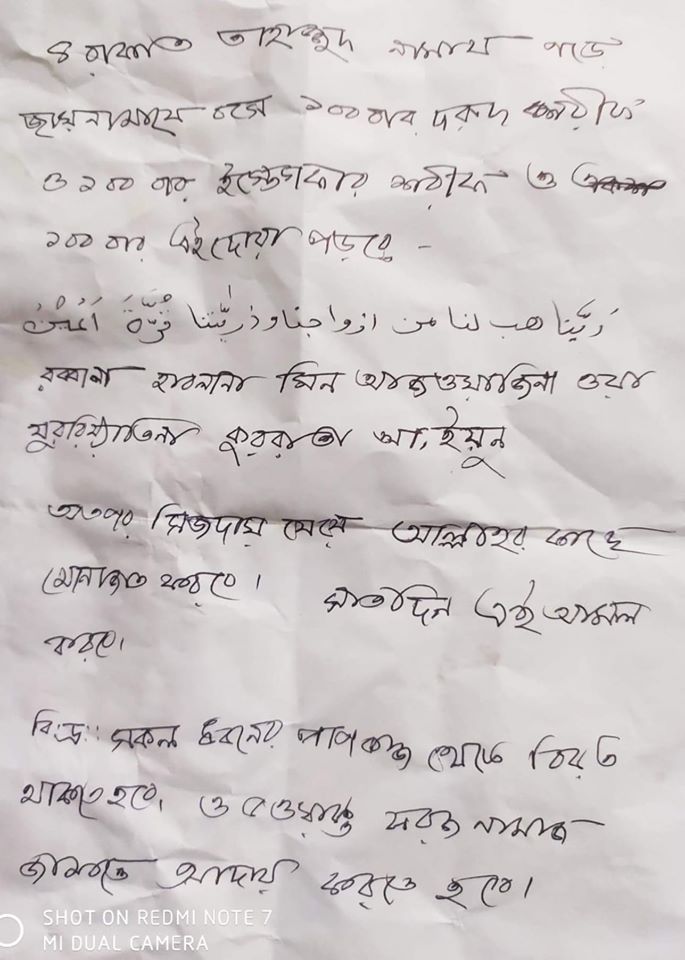 ৪ রাকাত তাহাজ্জুদ নামায পড়ে
জায়নামাযে বসে ১০০ বার দরুদ শরীফ
ও ১০০ বার ইস্তেগফার শরীফ ও
১০০ বার এই দোয়া পড়বে -
رَبَّنا هب لنا من ازواجنا وذريّٰتنا قُرَّةَ اَعْيُنٍ
রব্বানা হাবলানা মিন আজওয়াজিনা ওয়া
যুররিয়্যাতিনা কুররাতা আ,ইয়ুন
অতপর সিজদায় যেয়ে আল্লাহর কাছে
মোনাজাত করবে। সাতদিন এই আমল
করবে।
বি:দ্র: সকল ধরনের পাপ কাজ থেকে বিরত
থাকতে হবে, ও ৫ ওয়াক্ত ফরজ নামাজ
জামাতে আদায় করতে হবে।
SHOT ON REDMI NOTE 7
MI DUAL CAMERA